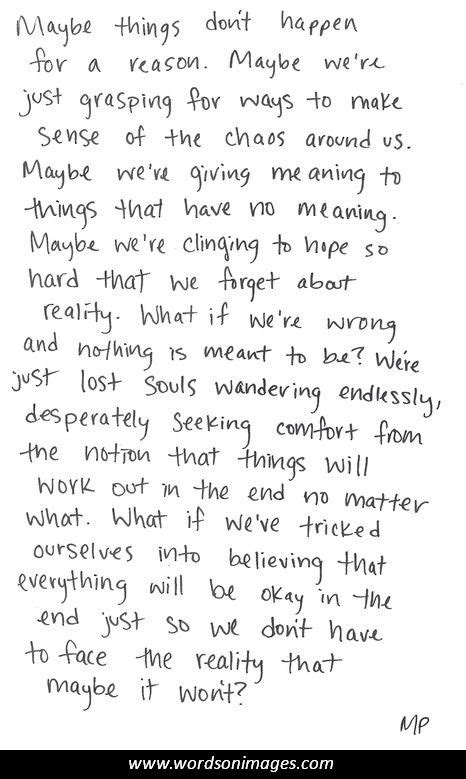 Maybe things don't happen
for a reason. Maybe we're
just grasping for ways to make
sense of the chaos around us.
Maybe we're giving meaning to
things that have no meaning.
Maybe we're clinging to hope so
hard that we forget about
reality. What if we're wrong
and nothing is meant to be? We're
just lost souls wandering endlessly,
desperately seeking comfort from
the notion that things will
work out in the end no matter
what. What if we've tricked
ourselves into believing that
everything will be okay in the
end just so we don't have
to face the reality that
maybe it won't?
MP
www.wordsonimages.com